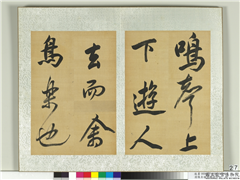 鳴聲上
下遊人
去而禽
鳥樂也
27